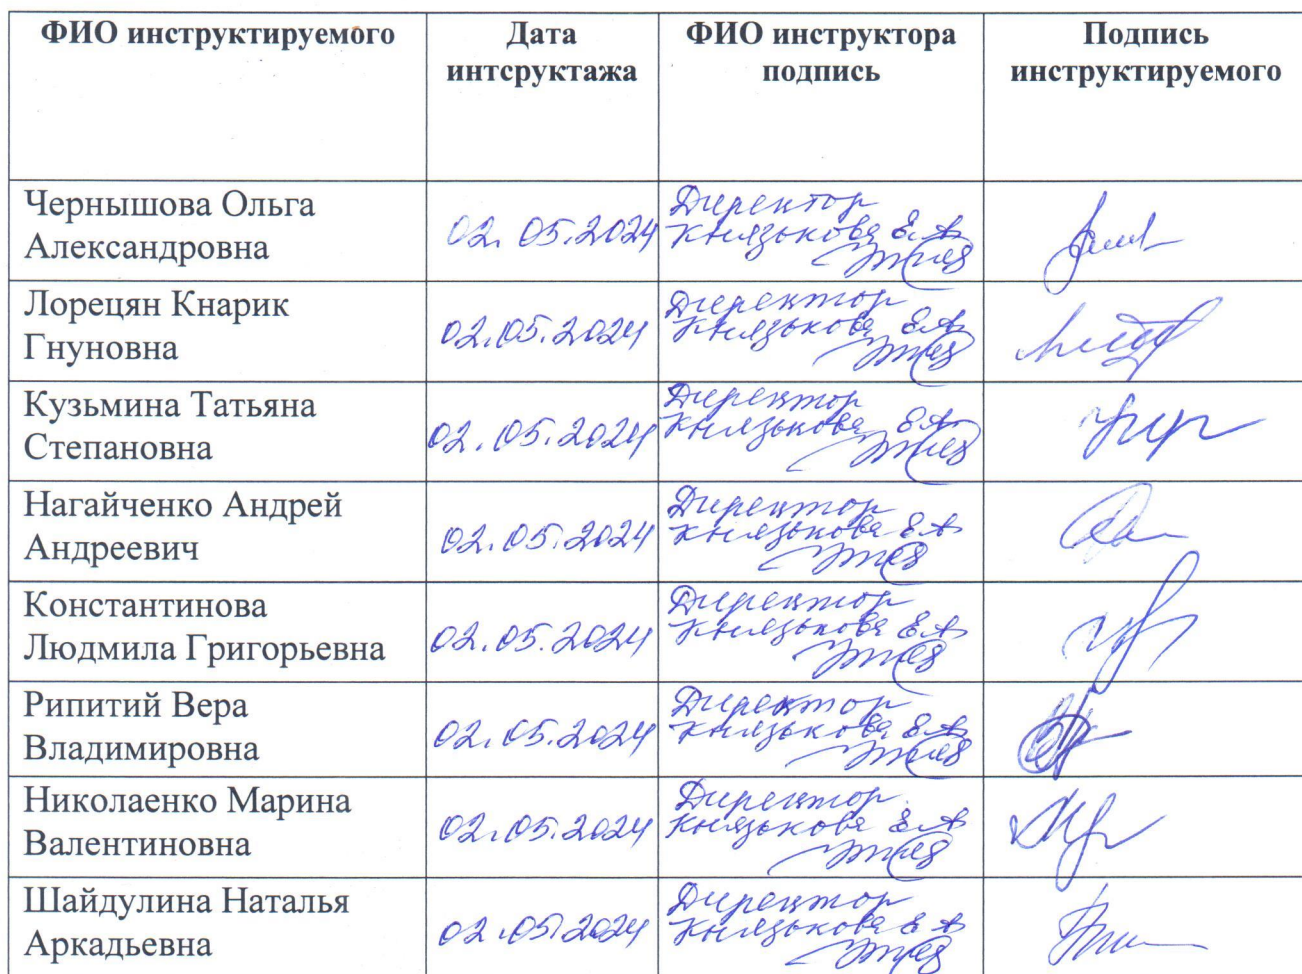 ФИО инструктируемого
Дата
интсруктажа
ФИО инструктора
подпись
Подпись
инструктируемого
Чернышова Ольга
Александровна
02.05.2024
Директор
Князькова Е.А.
Лорецян Кнарик
Гнуновна
02.05.2024
Директор
Князькова Е.А.
Кузьмина Татьяна
Степановна
02.05.2024
Директор
Князькова Е.А.
Нагайченко Андрей
Андреевич
02.05.2024
Директор
Князькова Е.А.
Константинова
Людмила Григорьевна
02.05.2024
Директор
Князькова Е.А.
Рипитий Вера
Владимировна
02.05.2024
Директор
Князькова Е.А.
Николаенко Марина
Валентиновна
02.05.2024
Директор
Князькова Е.А.
Шайдулина Наталья
Аркадьевна
02.05.2024
Директор
Князькова Е.А.